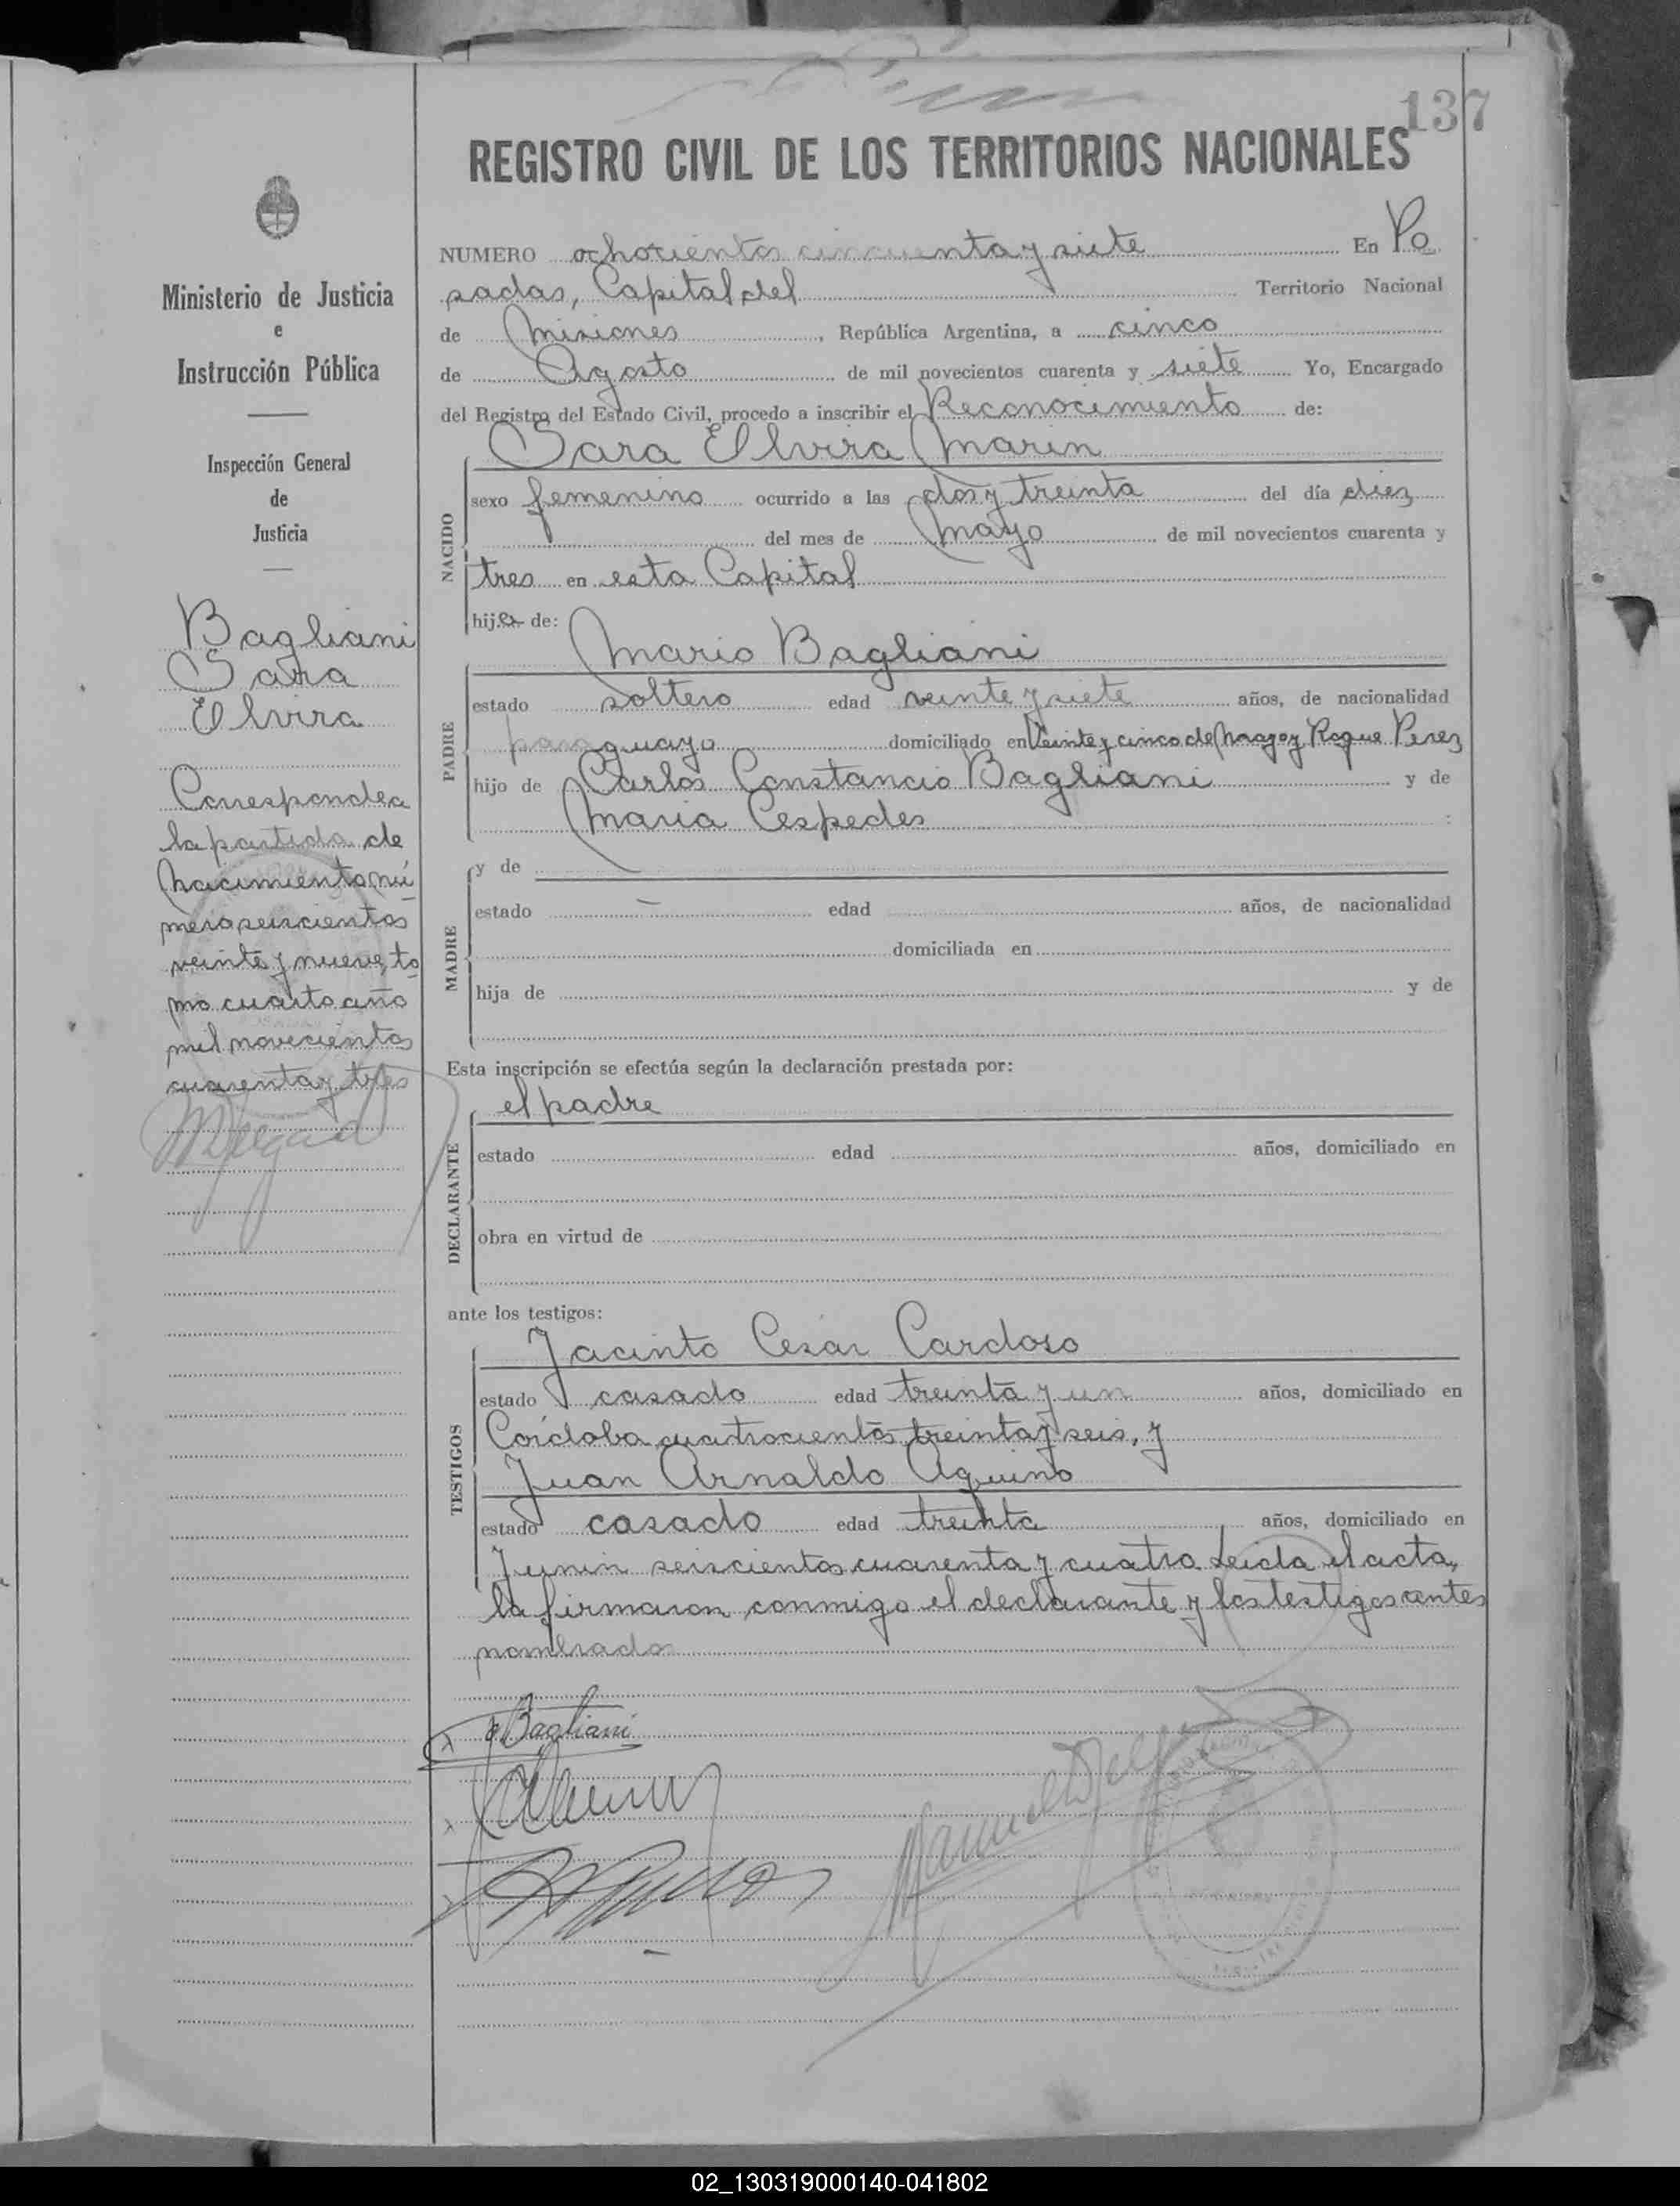 137
REGISTRO CIVIL DE LOS TERRITORIOS NACIONALES
Ministerio de Justicia
e
Instrucción Pública
Inspección General
de
Justicia
Bagliani
Sara
Elvira
Corresponde a
la partida de
Nacimiento nú
mero seiscientos
veinte y nueve, to
mo cuarto año
mil novecientos
cuarenta y tres
NUMERO ochocientos cincuenta y siete En Po
sadas, Capital del Territorio Nacional
de Misiones, República Argentina, a cinco
de Agosto de mil novecientos cuarenta y siete Yo, Encargado
del Registro del Estado Civil, procedo a inscribir el Reconocimiento de:
Sara Elvira Marin
NACIDO
sexo femenino ocurrido a las dos y treinta del día diez
del mes de Mayo de mil novecientos cuarenta y
tres en esta Capital
hija de:
Mario Bagliani
PADRE
estado soltero edad veinte y siete años, de nacionalidad
paraguayo domiciliado en Veinte y cinco de Mayo y Roque Perez
hijo de Carlos Constancio Bagliani y de
Maria Cespedes :
y de
MADRE
estado — edad años, de nacionalidad
domiciliada en
hija de y de
Esta inscripción se efectúa según la declaración prestada por:
el padre
DECLARANTE
estado edad años, domiciliado en
obra en virtud de
ante los testigos:
TESTIGOS
Jacinto Cesar Cardoso
estado casado edad treinta y un años, domiciliado en
Córdoba cuatrocientos treinta y seis, y
Juan Arnaldo Aquino
estado casado edad treinta años, domiciliado en
Junin seiscientos cuarenta y cuatro. Leida el acta,
la firmaron conmigo el declarante y los testigos antes
nombrados
Bagliani
02_130319000140-041802